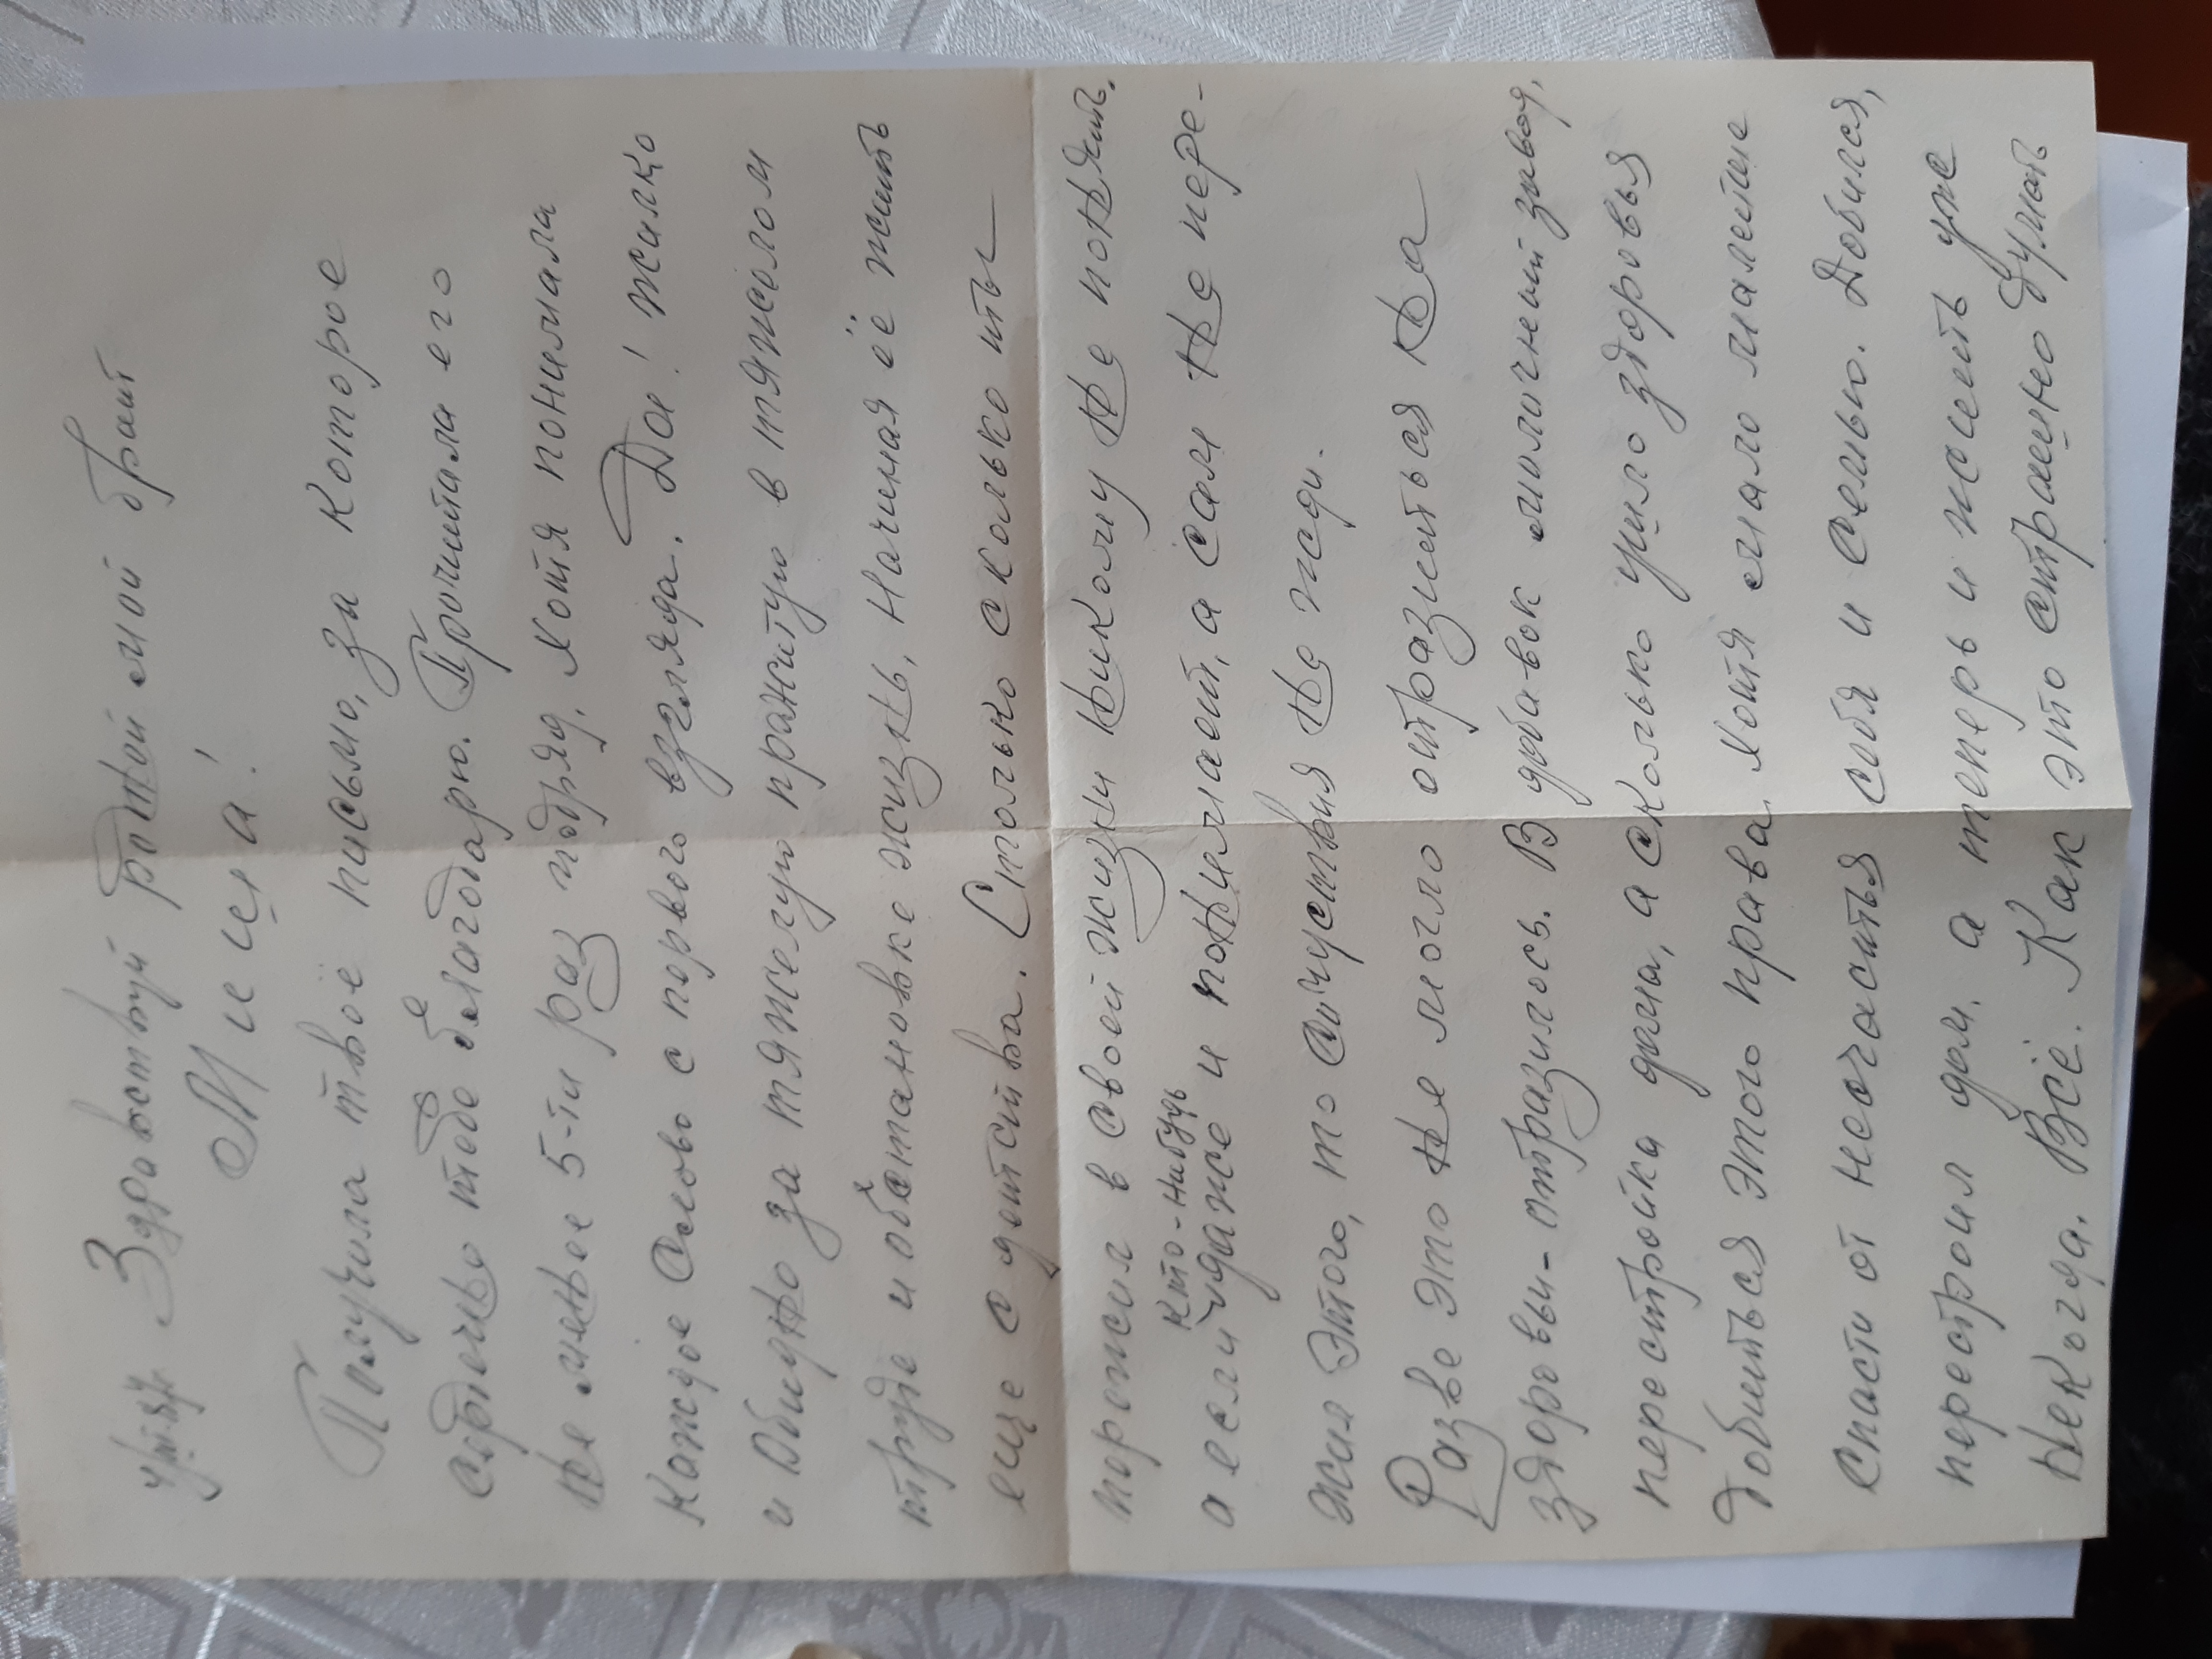 Здравствуй родной мой брат
Миша!
Получила твоё письмо, за которое
сердечно тебе благодарю. Прочитала его
не менее 5-ти раз подряд, хотя понимала
каждое слово с первого взгляда. Да! жалко
и обидно за тяжелую прожитую в тяжелом
труде и обстановке жизнь, начиная её жить
еще с детства. Столько сколько ты
пережил в своей жизни никому не понять.
кто-нибудь
а если даже и понимает, а сам не пере-
жил этого, то сочуствия не жди.
Разве это не могло отразиться на
здоровьи - отразилось. В добавок молочный завод,
перестройка дома, а сколько ушло здоровья
добиться этого права, хотя мало малейше
спасти от несчастья себя и семью. Добился,
перестроил дом. а теперь и жить уже
некогда. Всё. Как это страшно думать